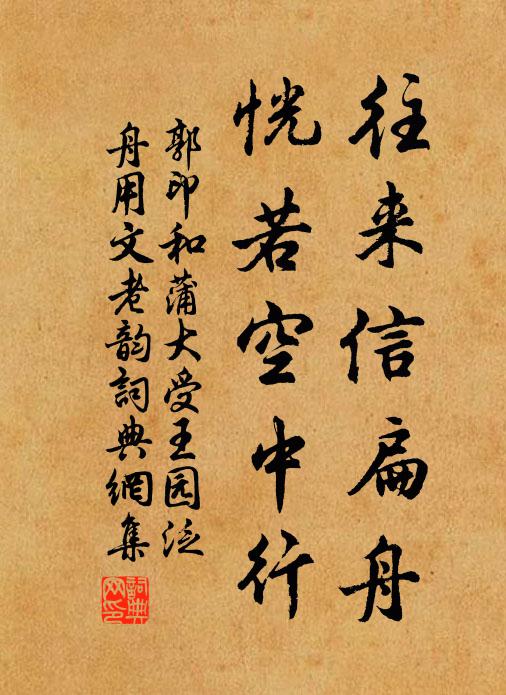 往来信扁舟
恍若空中行
郭印和蒲大受王园泛
舟用文老韵詞典網集
詞典网印